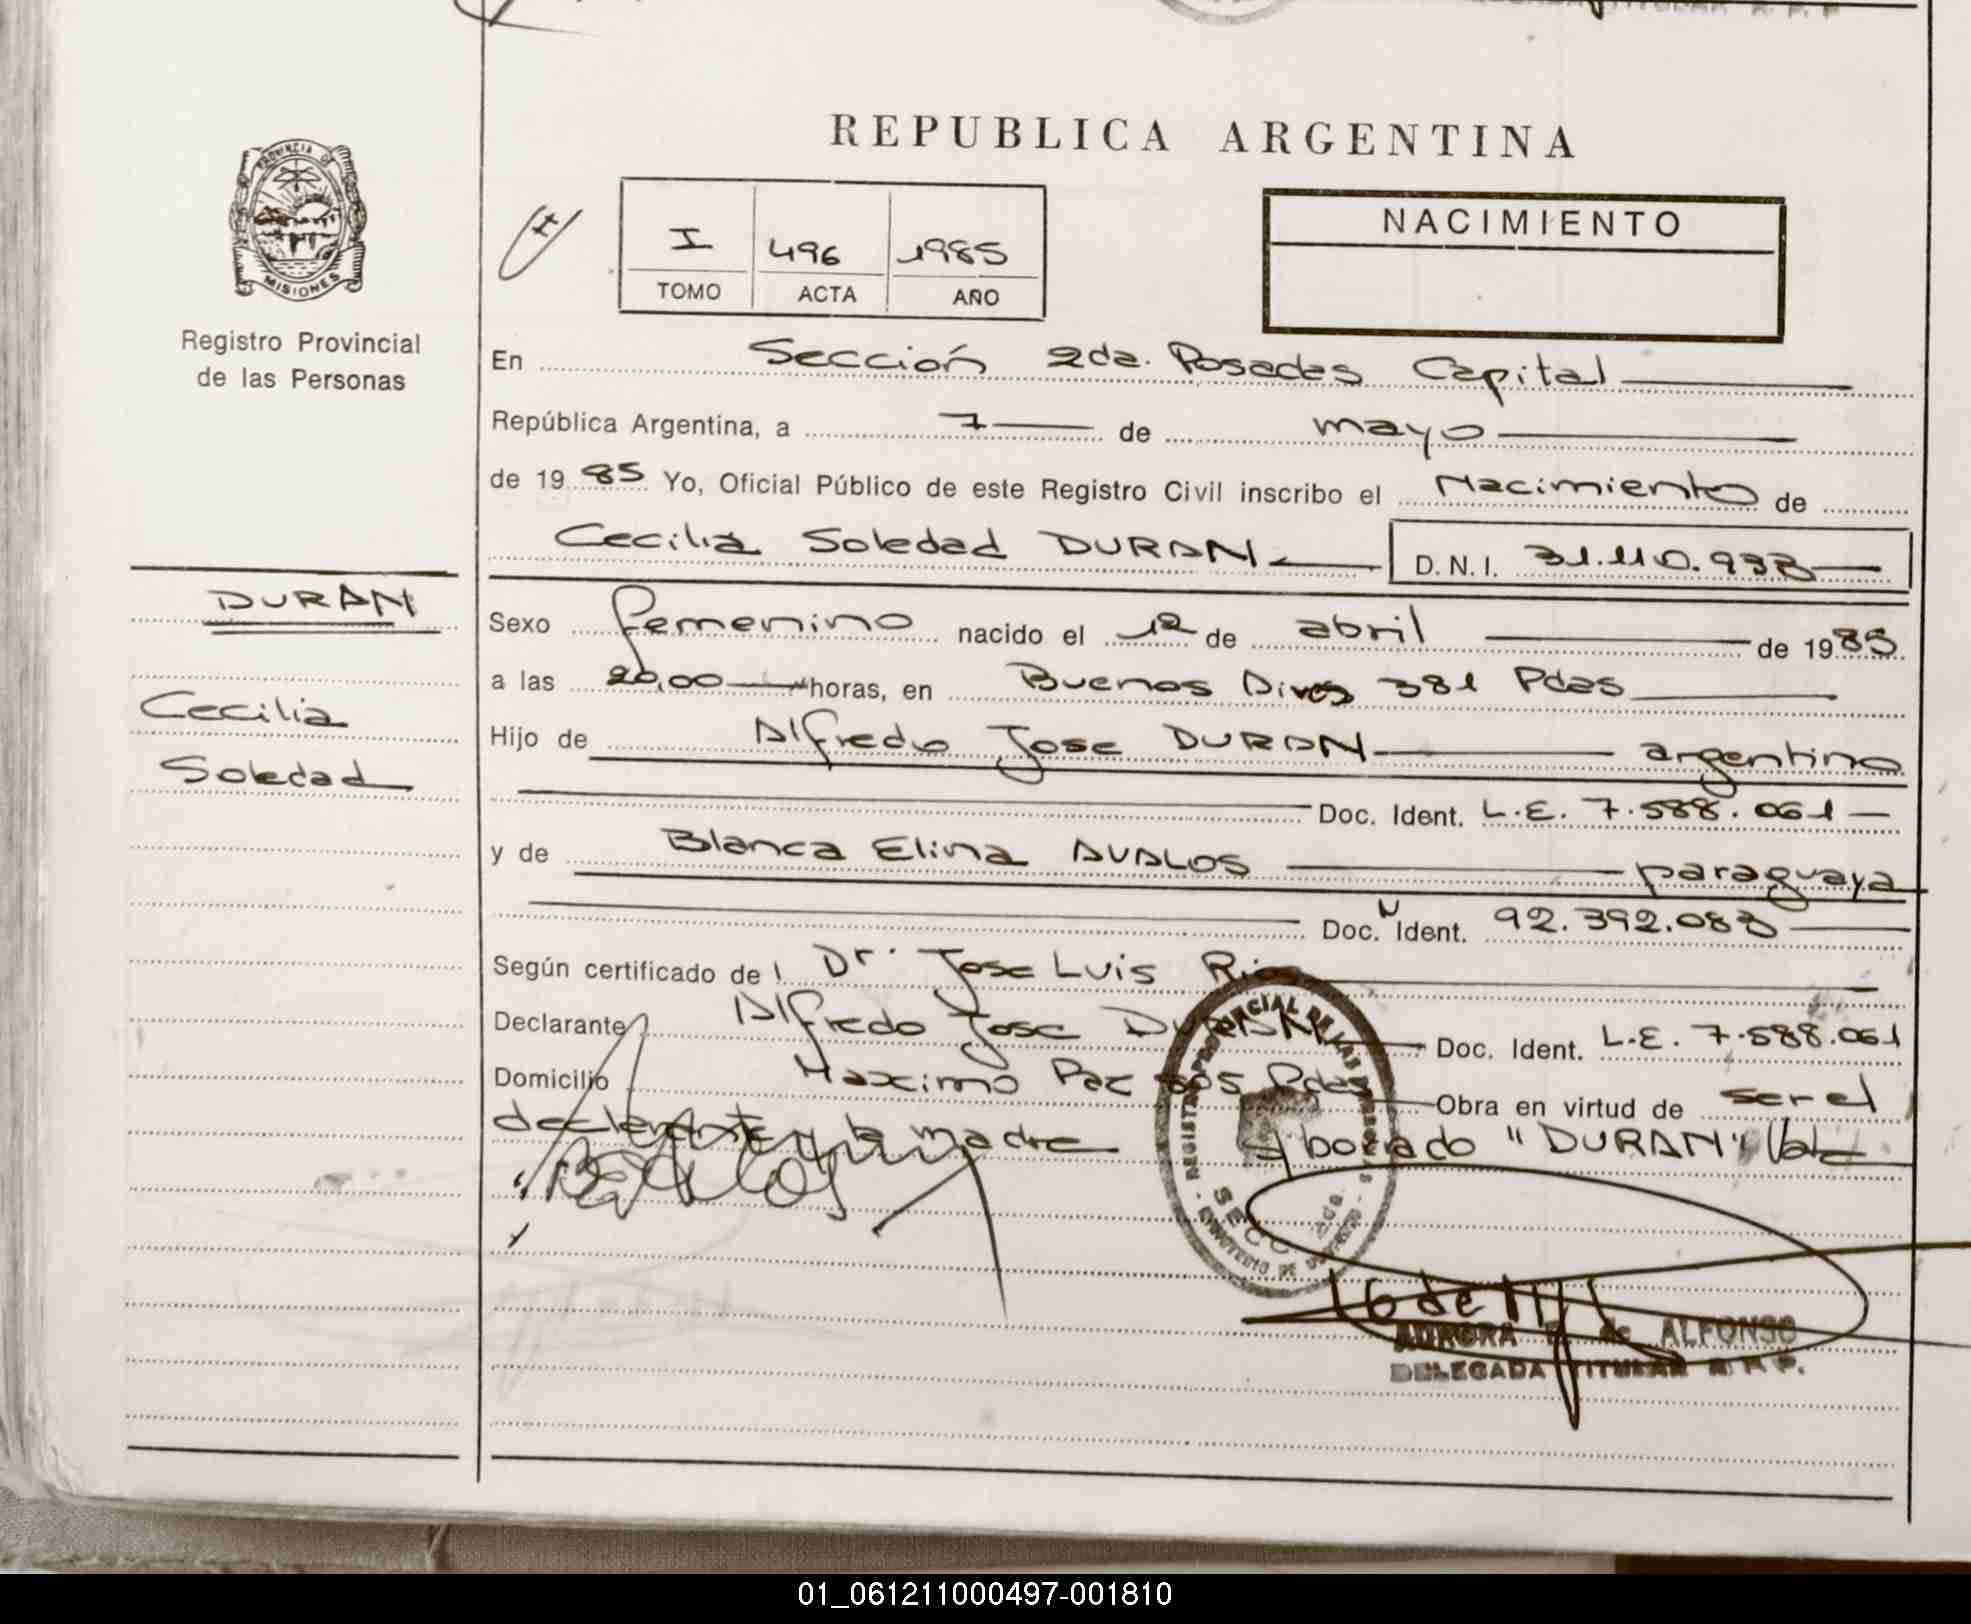 REPUBLICA ARGENTINA
PROVINCIA DE
MISIONES
Registro Provincial
de las Personas
H
I 496 1985
TOMO ACTA AÑO
NACIMIENTO
En Sección 2da. Posadas Capital
República Argentina, a 7 de mayo
de 1985 Yo, Oficial Público de este Registro Civil inscribo el Nacimiento de
Cecilia Soledad DURAN D.N.I. 31.110.933
DURAN
Cecilia
Soledad
Sexo femenino nacido el 12 de abril de 1985
a las 20,00 horas, en Buenos Aires 381 Pdas
Hijo de Alfredo Jose DURAN argentino
Doc. Ident. L.E. 7.588.061
y de Blanca Elina AVALOS paraguaya
Doc. Ident. 92.392.083
Según certificado de Dr. Jose Luis Rios
Declarante Alfredo Jose DURAN Doc. Ident. L.E. 7.588.061
Domicilio Maximo Paz Pdas Obra en virtud de ser el
declarante y la madre borrado "DURAN" Vale
REGISTRO PROVINCIAL DE LAS PERSONAS
SECC. 2da.
AURORA de ALFONSO
DELEGADA TITULAR R. P. P.
01_061211000497-001810